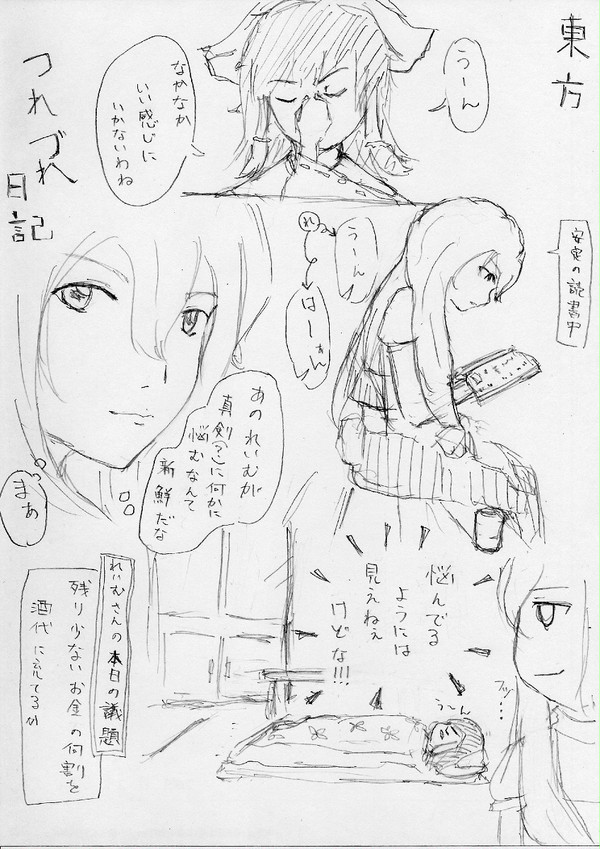 東方
つれづれ
日記
うーん
なかなか
いい感じに
いかないわね
安定の読書中
れ
うーん
はーぁん
あのれいむが
真剣(?)に何かに
悩むなんて
新鮮だな
まぁ
悩んでる
ようには
見えねぇ
けどな!!!
フッ…
う〜ん
れいむさんの本日の議題
残り少ないお金の何割を
酒代に